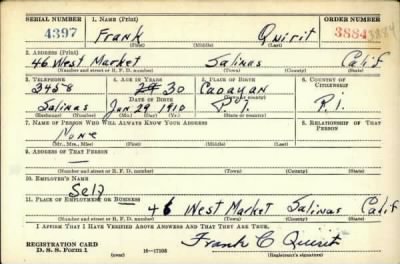 SERIAL NUMBER 1. NAME (Print) ORDER NUMBER
4397 Frank Quirit 3884 3884
(First) (Middle) (Last)
2. ADDRESS (Print)
46 West Market Salinas Calif
(Number and street or R. F. D. number) (Town) (County) (State)
3. TELEPHONE 4. AGE IN YEARS 5. PLACE OF BIRTH 6. COUNTRY OF CITIZENSHIP
3458 29 30 Caoayan
DATE OF BIRTH
Salinas Jan 29 1910 P. I. P. I.
(Exchange) (Number) (Mo.) (Day) (Yr.) (Town) (State or country)
7. NAME OF PERSON WHO WILL ALWAYS KNOW YOUR ADDRESS 8. RELATIONSHIP OF THAT PERSON
None
(Mr., Mrs., Miss) (First) (Middle) (Last)
9. ADDRESS OF THAT PERSON
—
(Number and street or R. F. D. number) (Town) (County) (State)
10. EMPLOYER'S NAME
Self
11. PLACE OF EMPLOYMENT OR BUSINESS
46 West Market Salinas Calif
(Number and street or R. F. D. number) (Town) (County) (State)
I AFFIRM THAT I HAVE VERIFIED ABOVE ANSWERS AND THAT THEY ARE TRUE.
REGISTRATION CARD
D. S. S. Form 1 16—17105 Frank C Quirit
(over) (Registrant's signature)